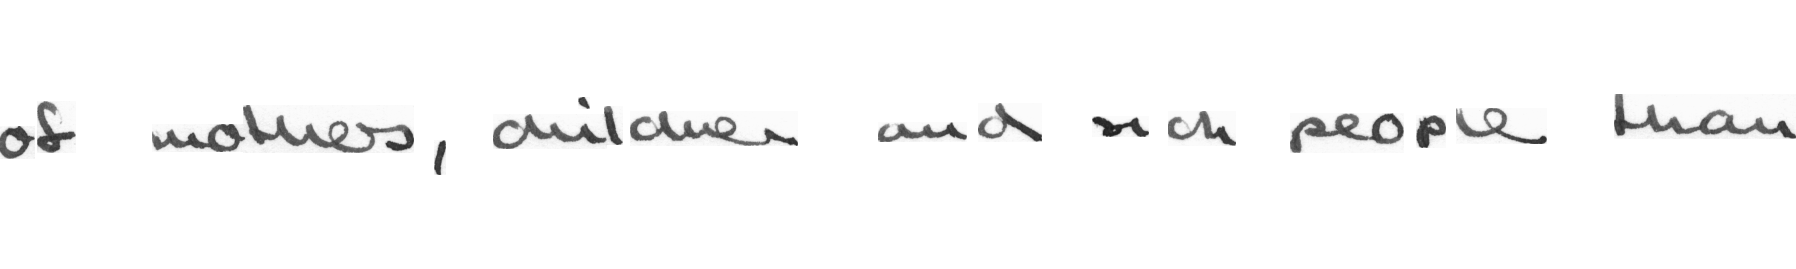 of mothers, children and sick people than